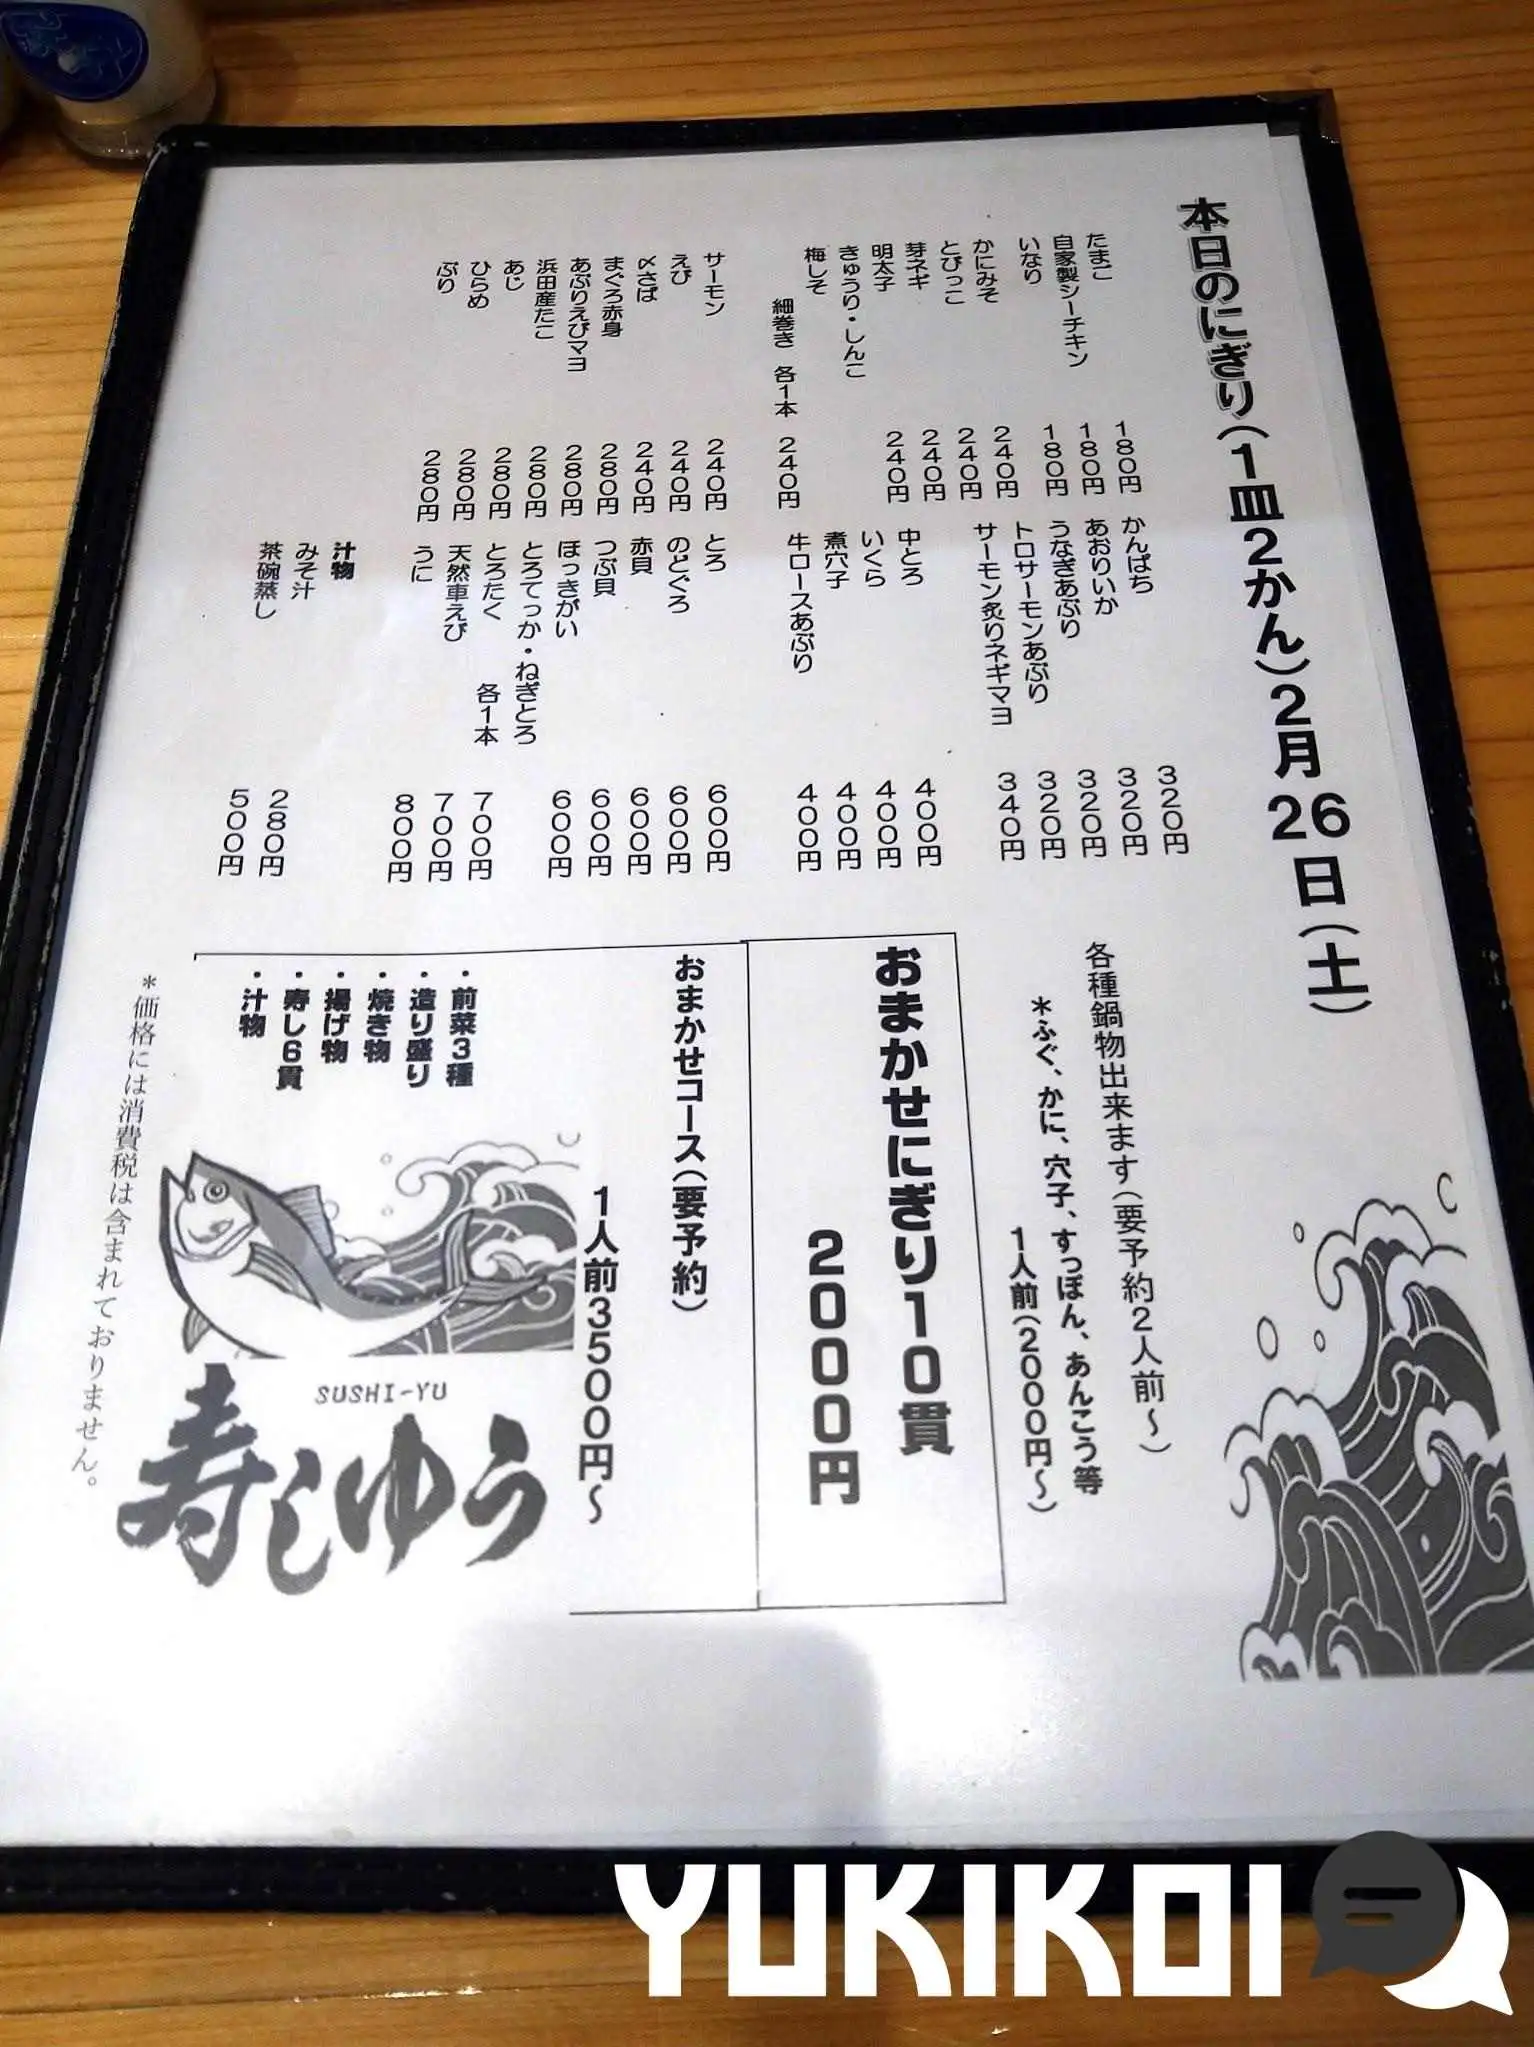 本日のにぎり（1皿2かん）2月26日（土）
たまご 180円
自家製シーチキン 180円
いなり 180円
かにみそ 240円
とびっこ 240円
芽ネギ 240円
明太子 240円
きゅうり・しんこ
梅しそ
細巻き 各1本 240円
サーモン 240円
えび 240円
〆さば 240円
まぐろ赤身 280円
あぶりえびマヨ 280円
浜田産たこ 280円
あじ 280円
ひらめ 280円
ぶり 280円
かんぱち 320円
あおりいか 320円
うなぎあぶり 320円
トロサーモンあぶり 320円
サーモン炙りネギマヨ 340円
中とろ 400円
いくら 400円
煮穴子 400円
牛ロースあぶり 400円
とろ 600円
のどぐろ 600円
赤貝 600円
つぶ貝 600円
ほっきがい 600円
とろてっか・ねぎとろ
とろたく 各1本 700円
天然車えび 700円
うに 800円
汁物
みそ汁 280円
茶碗蒸し 500円
各種鍋物出来ます（要予約2人前～）
＊ふぐ、かに、穴子、すっぽん、あんこう等
1人前（2000円～）
おまかせにぎり10貫
2000円
おまかせコース（要予約）
1人前3500円～
・前菜3種
・造り盛り
・焼き物
・揚げ物
・寿し6貫
・汁物
SUSHI-YU
寿しゆう
＊価格には消費税は含まれておりません。
YUKIKOI